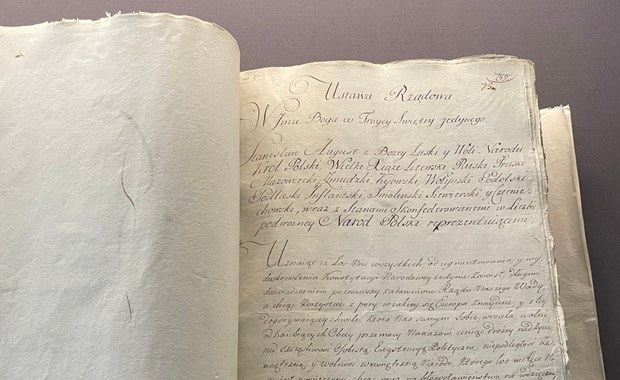 65
72
Ustawa Rządowa
W Imie Boga w Troycy Swiętey jedynego.
Stanisław August z Bozey Łaski y Woli Narodu
Krol Polski, Wielki Xiąze Litewski, Ruski, Pruski
Mazowiecki, Zmudzki, Kijowski, Wołynski, Podolski
Podlaski, Inflantski, Smolenski, Siewierski, y Czernie-
chowski, wraz z Stanami Skonfederowanemi w liczbie
podwoyney Narod Polski reprezentuiącemi.
Uznaiąc iz Los Nas wszystkich od ugruntowania y wy-
doskonalenia Konstytucyi Narodowey iedynie zawisł, długim
doswiadczeniem poznawszy zadawnione Rządu Naszego Wady,
a chcąc korzystać z pory w iakiey się Europa znayduie, y z tey
dogorywaiącey chwili, ktora Nas samym Sobie wrociła, wolni
od hanbiących Obcey przemocy Nakazow, ceniąc drozey nad zycie
nad szczęśliwosc Osobistą Exystencyą Polityczną, niepodległosc ze-
wnętrzną y wolnosc wewnętrzną Narodu, ktorego los w ręce N